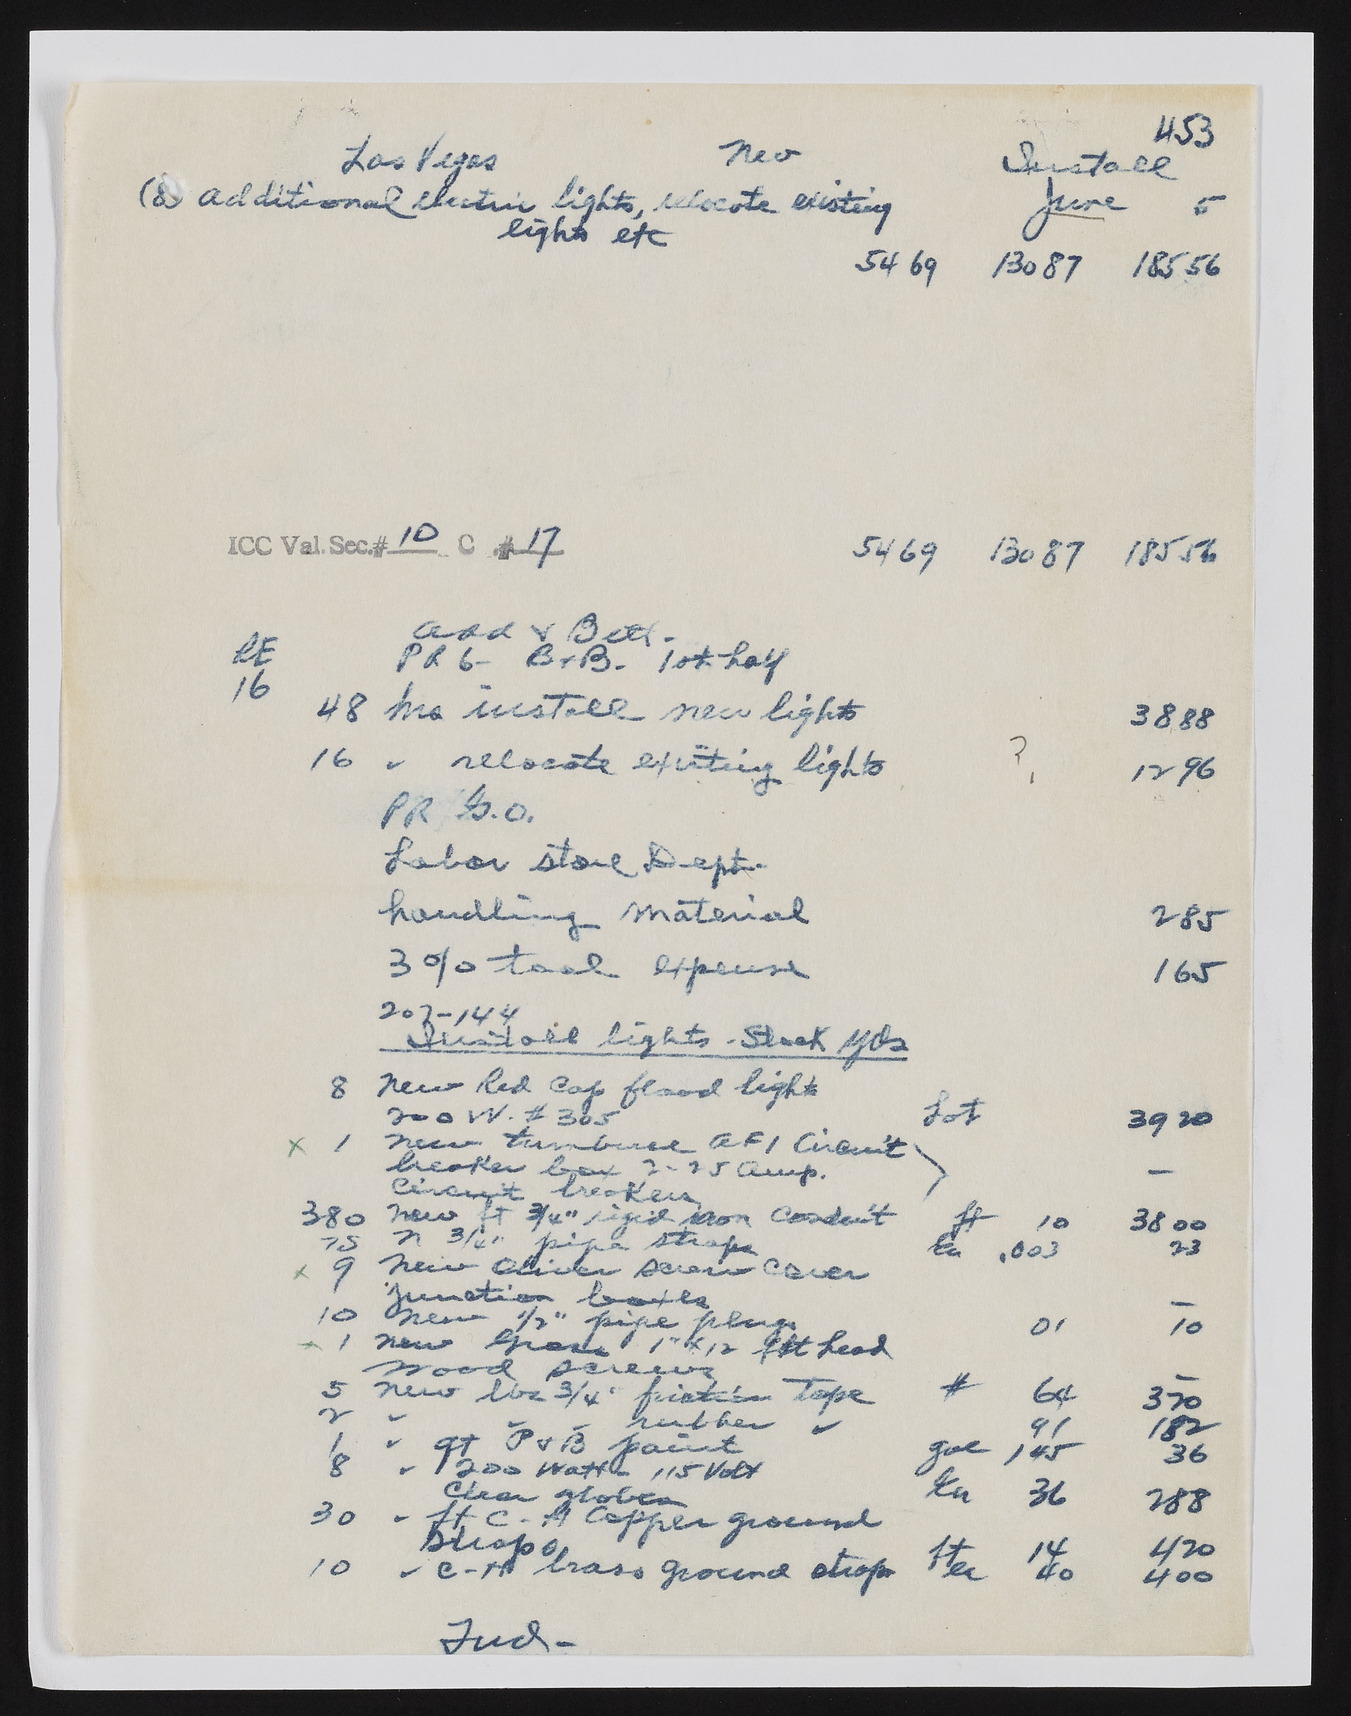 453
Las Vegas Nev Install
(8) additional electric lights, relocate existing June 5
lights etc
54 69 130 87 185 56
ICC Val. Sec.# 10 C # 17 54 69 130 87 185 56
Add & Bett.
RE PR 6- B&B- 1st half
16
48 hrs install new lights 38 88
16 " relocate existing lights ? 12 96
PR G.O.
Labor store Dept.
handling material 2 85
3% tool expense 1 65
207-144
Install lights - Stock Yds
8 new Red Cap flood light
200 W. # 305 Lot 39 20
x 1 new AF1 Circuit
breaker box 2-25 Amp. —
Circuit breakers
380 new ft 3/4" rigid iron conduit ft 10 38 00
75 n 3/4" pipe straps Ea .003 23
x 9 new screw cover
Junction boxes —
10 new 1/2" pipe plugs 01 10
x 1 new Gross 1" x 12 flt head
wood screws —
5 new lbs 3/4" friction Tape # 64 3 20
2 " " " rubber " 91 1 82
1 " qt P&B paint gal 145 36
8 " 200 Watts 115 Volt
Clear globes Ea 36 2 88
30 " ft C-H Copper ground
straps ft 14 4 20
10 " C-H brass ground straps ea 40 4 00
Fwd-